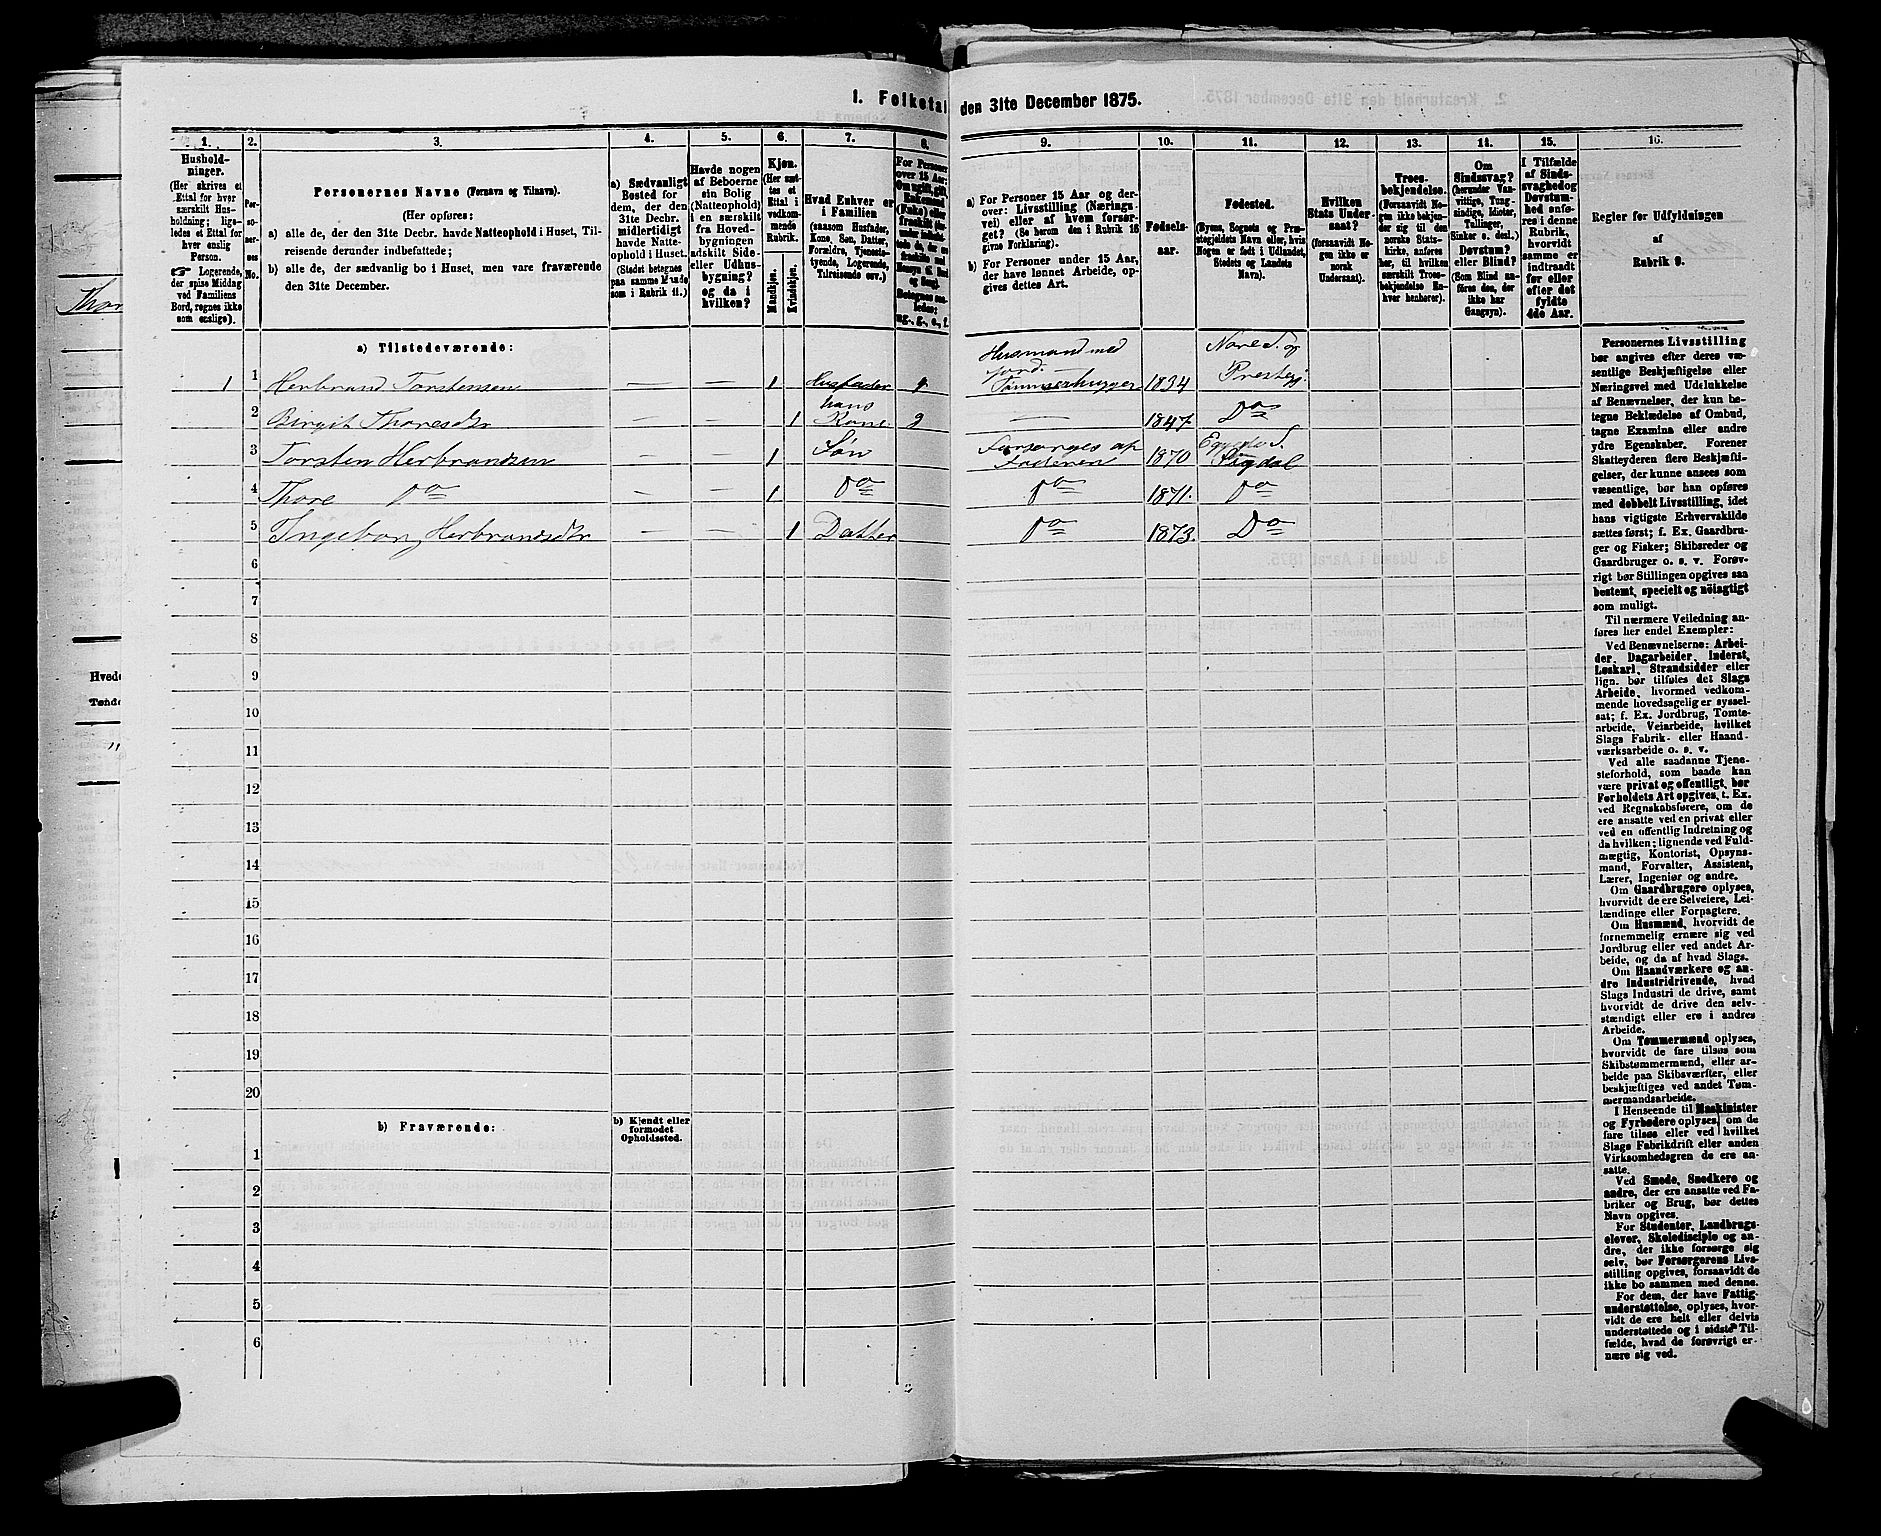 1. Folketal den 31te December 1875.
1. 2. 3. 4. 5. 6. 7. 8. 9. 10. 11. 12. 13. 14. 15. 16.
Hushold-
ninger.
(Her skrives et
Ettal for hver
særskilt Hus-
holdning; lige-
ledes et Ettal for
hver enslig
Person.
☛ Logerende,
der spise Middag
ved Familiens
Bord, regnes ikke
som enslige).
Per-
so-
ner-
nes
No.
Personernes Navne (Fornavn og Tilnavn).
(Her opføres:
a) alle de, der den 31te Decbr. havde Natteophold i Huset, Til-
reisende derunder indbefattede;
b) alle de, der sædvanlig bo i Huset, men vare fraværende
den 31te December.
a) Sædvanligt
Bosted for
dem, der den
31te Decbr.
midlertidigt
havde Natte-
ophold i Huset.
(Stedet betegnes
paa samme Maade
som i Rubrik 11.)
Havde nogen
af Beboerne
sin Bolig
(Natteophold)
i en særskilt
fra Hoved-
bygningen
adskilt Side-
eller Udhus-
bygning?
og da i
hvilken?
Kjøn.
(Her sæt-
tes et
Ettal i
vedkom-
mende
Rubrik.
Mandkjøn.
Kvindekjøn.
Hvad Enhver er
i Familien
(saasom Husfader,
Kone, Søn, Datter,
Forældre, Tjeneste-
tyende, Logerende,
Tilreisende osv.)
For Personer
over 15 Aar:
a) For Personer 15 Aar og der-
over: Livsstilling (Nærings-
vei) eller af hvem forsør-
get? (Se herom den i Rubrik 16
givne Forklaring).
b) For Personer under 15 Aar,
der have lønnet Arbeide, op-
gives dettes Art.
Fødsels-
aar.
Fødested.
(Byens, Sognets og Præ-
stegjeldets Navn eller, hvis
Nogen er født i Udlandet,
Stedets og Landets
Navn).
Hvilken
Stats Under-
saat?
(forsaavidt No-
gen ikke er
norsk
Undersaat).
Troes-
bekjendelse.
(Forsaavidt No-
gen ikke bekjen-
der sig til den
norske Stats-
kirke, anføres
her, til hvilken
særskilt Troes-
bekjendelse En-
hver henhører).
Om
Sindssvag?
(herunder Van-
vittige, Tung-
sindige, Idioter,
Tullinger,
Sinker o. desl.)
Døvstum?
eller Blind?
(Som Blind an-
føres den, der
ikke har
Gangsyn).
I Tilfælde
af Sinds-
svaghed og
Døvstum-
hed anfø-
res i denne
Rubrik,
hvorvidt
samme er
indtraadt
før eller
efter det
fyldte
4de Aar.
Regler for Udfyldningen
af
Rubrik 9.
a) Tilstedeværende:
1 1 Herbrand Torstensen — — 1 Husfader g Husmand med Jord. Tømmerhugger 1834 Nore S. og Prestegj.
2 Birgit Thoresdtr — — 1 hans Kone g — 1847. Do
3 Torsten Herbrandsen — — 1 Søn Forsørges af Faderen 1870 Eggedal S. Sigdal
4 Thore Do — — 1 Do Do 1871. Do
5 Ingeborg Herbrandsdtr — — 1 Datter Do 1873. Do
6
7
8
9
10
11
12
13
14
15
16
17
18
19
20
b) Fraværende:
b) Kjendt eller
formodet
Opholdssted.
1
2
3
4
5
6
Personernes Livsstilling
bør angives efter deres væ-
sentlige Beskjæftigelse eller
Næringsvei med Udelukkelse
af Benævnelser, der kun be-
tegne Beklædelse af Ombud,
tagne Examina eller andre
ydre Egenskaber. Forener
Skatteyderen flere Beskjæfti-
gelser, der kunne ansees som
væsentlige, bør han opføres
med dobbelt Livsstilling, idet
hans vigtigste Erhvervskilde
sættes først; f. Ex. Gaardbru-
ger og Fisker; Skibsreder og
Gaardbruger o. s. v. Forøv-
rigt bør Stillingen opgives saa
bestemt, specielt og nøiagtigt
som muligt.
Til nærmere Veiledning an-
føres her endel Exempler:
Ved Benævnelserne: Arbei-
der, Dagarbeider, Inderst,
Løskarl, Strandsidder eller
lign. bør tilføies det Slags
Arbeide, hvormed vedkom-
mende hovedsagelig er syssel-
sat; f. Ex. Jordbrug, Tomte-
arbeide, Veiarbeide, hvilket
Slags Fabrik- eller Haand-
værksarbeide o. s. v.
Ved alle saadanne Tjene-
steforhold, som baade kan
være privat og offentligt, bør
Forholdets Art opgives, t. Ex.
ved Regnskabsførere, om de
ere ansatte ved en privat eller
ved en offentlig Indretning og
da hvilken; lignende ved Fuld-
mægtig, Kontorist, Opsyns-
mand, Forvalter, Assistent,
Lærer, Ingeniør og andre.
Om Gaardbrugere oplyses,
hvorvidt de ere Selveiere, Lei-
lændinge eller Forpagtere.
Om Husmænd, hvorvidt de
fornemmelig ernære sig ved
Jordbrug eller ved andet Ar-
beide, og da af hvad Slags.
Om Haandværkere og an-
dre Industridrivende, hvad
Slags Industri de drive, samt
hvorvidt de drive den selv-
stændigt eller ere i andres
Arbeide.
Om Tømmermænd oplyses,
hvorvidt de fare tilsøs som
Skibstømmermænd, eller ar-
beide paa Skibsværfter, eller
beskjæftiges ved andet Tøm-
mermandsarbeide.
I Henseende til Maskinister
og Fyrbødere oplyses, om de
fare tilsøs eller ved hvilket
Slags Fabrikdrift eller anden
Virksomhedsgren de ere an-
satte.
Ved Smede, Snedkere og
andre, der ere ansatte ved Fa-
briker og Brug, bør dettes
Navn opgives.
For Studenter, Landbrugs-
elever, Skoledisciple og an-
dre, der ikke forsørge sig
selv, bør Forsørgerens Livs-
stilling opgives, forsaavidt de
ikke bo sammen med denne.
For dem, der have Fattig-
understøttelse, oplyses, hvor-
vidt de ere helt eller delvis
understøttede og i sidste Til-
fælde, hvad de forøvrigt er-
nære sig ved.